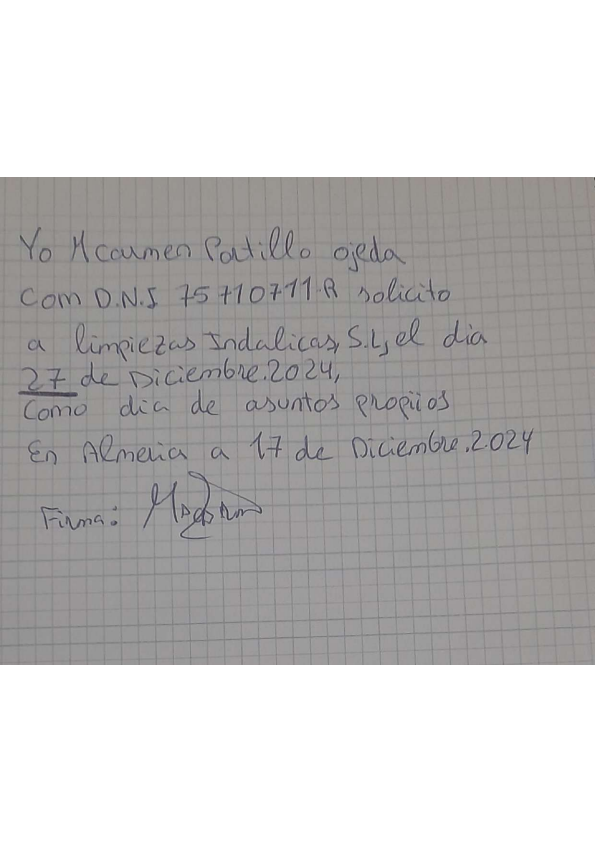 Yo Mcarmen Portillo ojeda
Com D.N.I 75710711.R solicito
a limpiezas Indalicas, S.L, el dia
27 de Diciembre.2024,
Como dia de asuntos propiios
En Almeria a 17 de Diciembre.2024
Firma: